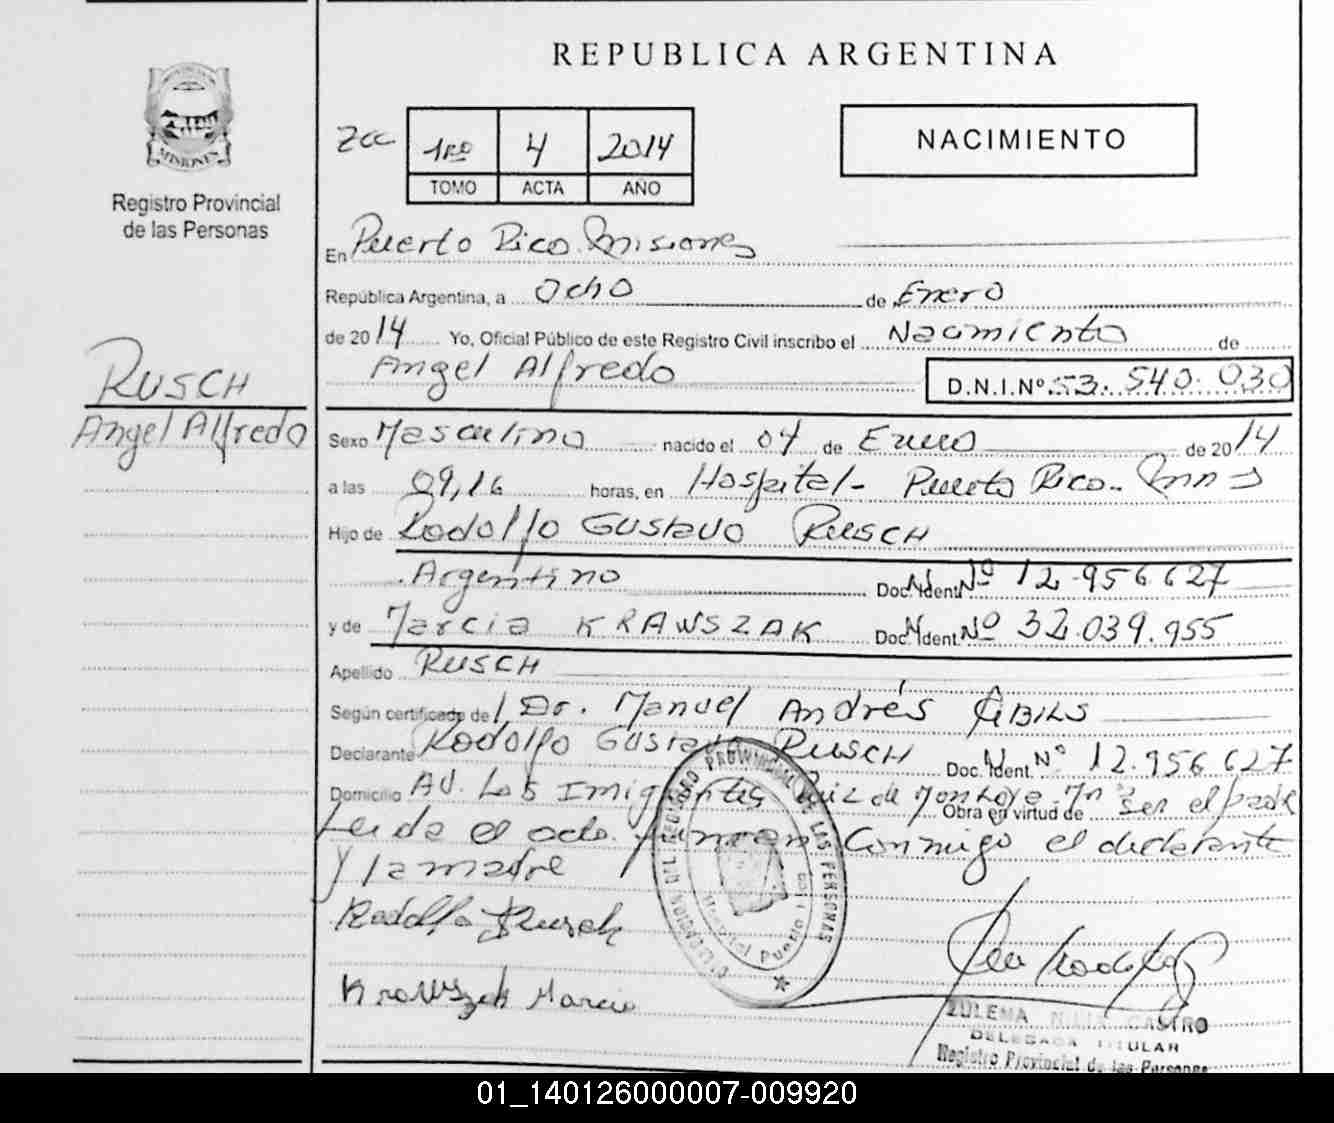 REPUBLICA ARGENTINA
MISIONES
Registro Provincial
de las Personas
1ro 4 2014
TOMO ACTA AÑO
NACIMIENTO
En Puerto Rico. Misiones
República Argentina, a Ocho de Enero
de 2014 Yo, Oficial Público de este Registro Civil inscribo el Nacimiento de
Angel Alfredo D.N.I.Nº 53.540.030
RUSCH
Angel Alfredo
Sexo Masculino nacido el 04 de Enero de 2014
a las 09,16 horas, en Hospital- Puerto Rico- Mnes
Hijo de Rodolfo Gustavo RUSCH
Argentino Doc. Ident. Nº 12.956.627
y de Marcia KRAWSZAK Doc. Ident. Nº 32.039.955
Apellido RUSCH
Según certificado del Dr. Manuel Andrés GIBILS
Declarante Rodolfo Gustavo RUSCH Doc. Ident. Nº 12.956.627
Domicilio Av. Los Inmigrantes Ruiz de Montoya Mnes
Obra en virtud de Ser el padre
Leída el acta firman Conmigo el declarante
y la madre
Rodolfo Rusch
Krawszak Marcia
DELEGACION DEL REGISTRO PROVINCIAL DE LAS PERSONAS
Hospital Puerto Rico
ZULEMA CASTRO
DELEGADA TITULAR
Registro Provincial de las Personas
01_140126000007-009920